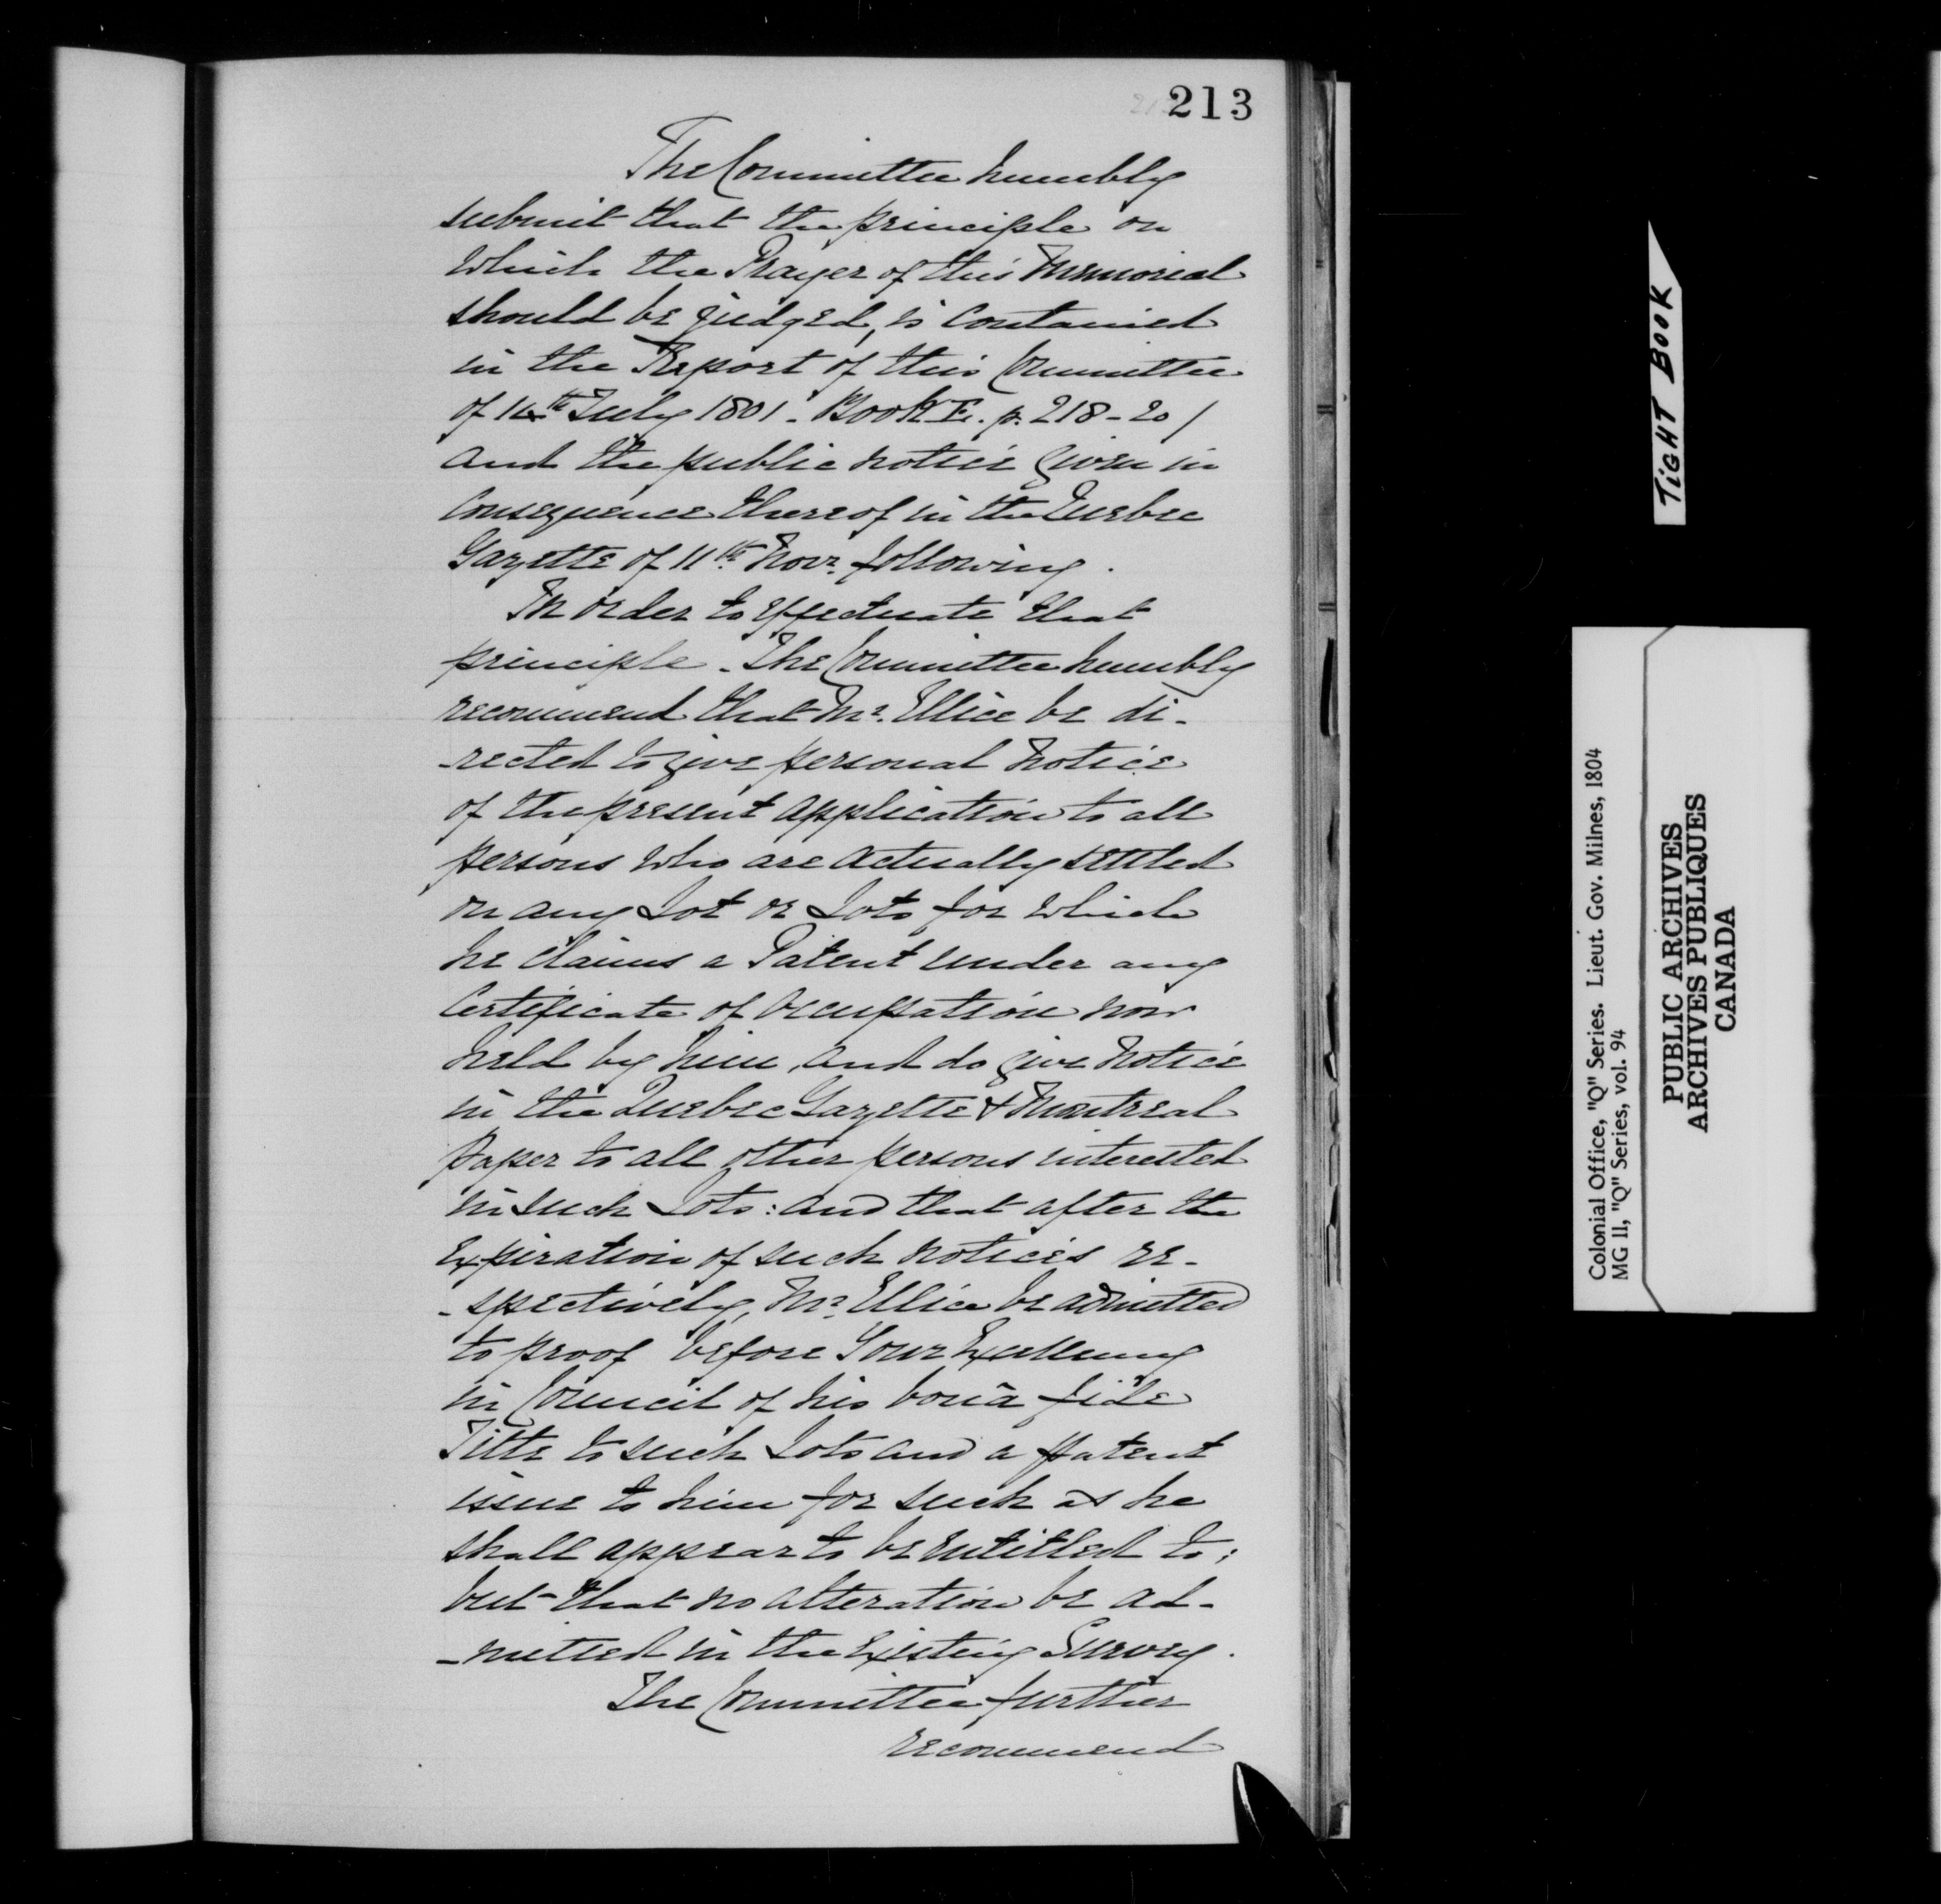 213
The Committee humbly
submit that the principle on
which the Prayer of this Memorial
should be judged, is contained
in the Report of this Committee
of 14th July 1801 - Book E. p. 218-20 /
and the public notice given in
Consequence thereof in the Quebec
Gazette of 11th Novr. following.
In order to effectuate that
principle - The Committee humbly
recommend that Mr. Ellice be di-
-rected to give personal Notice
of the present application to all
persons who are actually settled
on any Lot or Lots for which
he claims a Patent under any
Certificate of Occupation now
held by him, and do give Notice
in the Quebec Gazette & Montreal
Paper to all other persons interested
in such Lots: and that after the
Expiration of such notices re-
-spectively, Mr. Ellice be admitted
to proof before Your Excellency
in Council of his bonâ fide
Title to such Lots and a Patent
issue to him for such as he
shall appear to be entitled to;
but that no alteration be ad-
-mitted in the Existing Survey.
The Committee further
recommend
TIGHT BOOK
Colonial Office, "Q" Series. Lieut. Gov. Milnes, 1804
MG 11, "Q" Series, vol. 94
PUBLIC ARCHIVES
ARCHIVES PUBLIQUES
CANADA